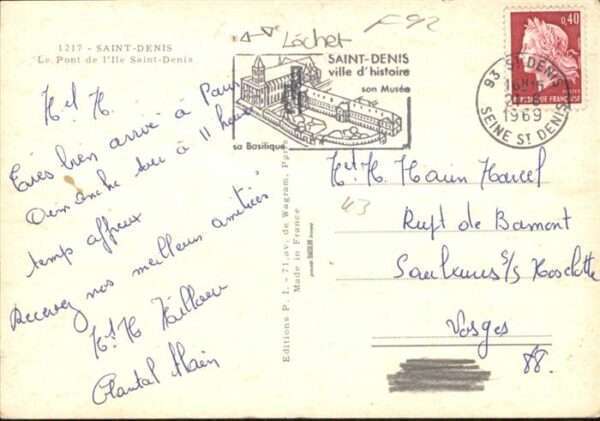 1217 - SAINT-DENIS
Le Pont de l'Ile Saint-Denis
Mel M.
Très bien arrivé à Paris
Dimanche soir à 11 heures
temps affreux
Recevez nos meilleurs amitiés
Mel M
Chantal Alain
Editions P. I. - 71, av. de Wagram, Paris
Made in France
Lachet
F92
SAINT-DENIS
ville d'histoire
son Musée
sa Basilique
93 ST DENIS
16H
1969
SEINE ST DENIS
0,40
REPUBLIQUE FRANÇAISE
Mel M. Marcel
43
Rupt de Bamont
Saulxures s/s Moselotte
Vosges
88.